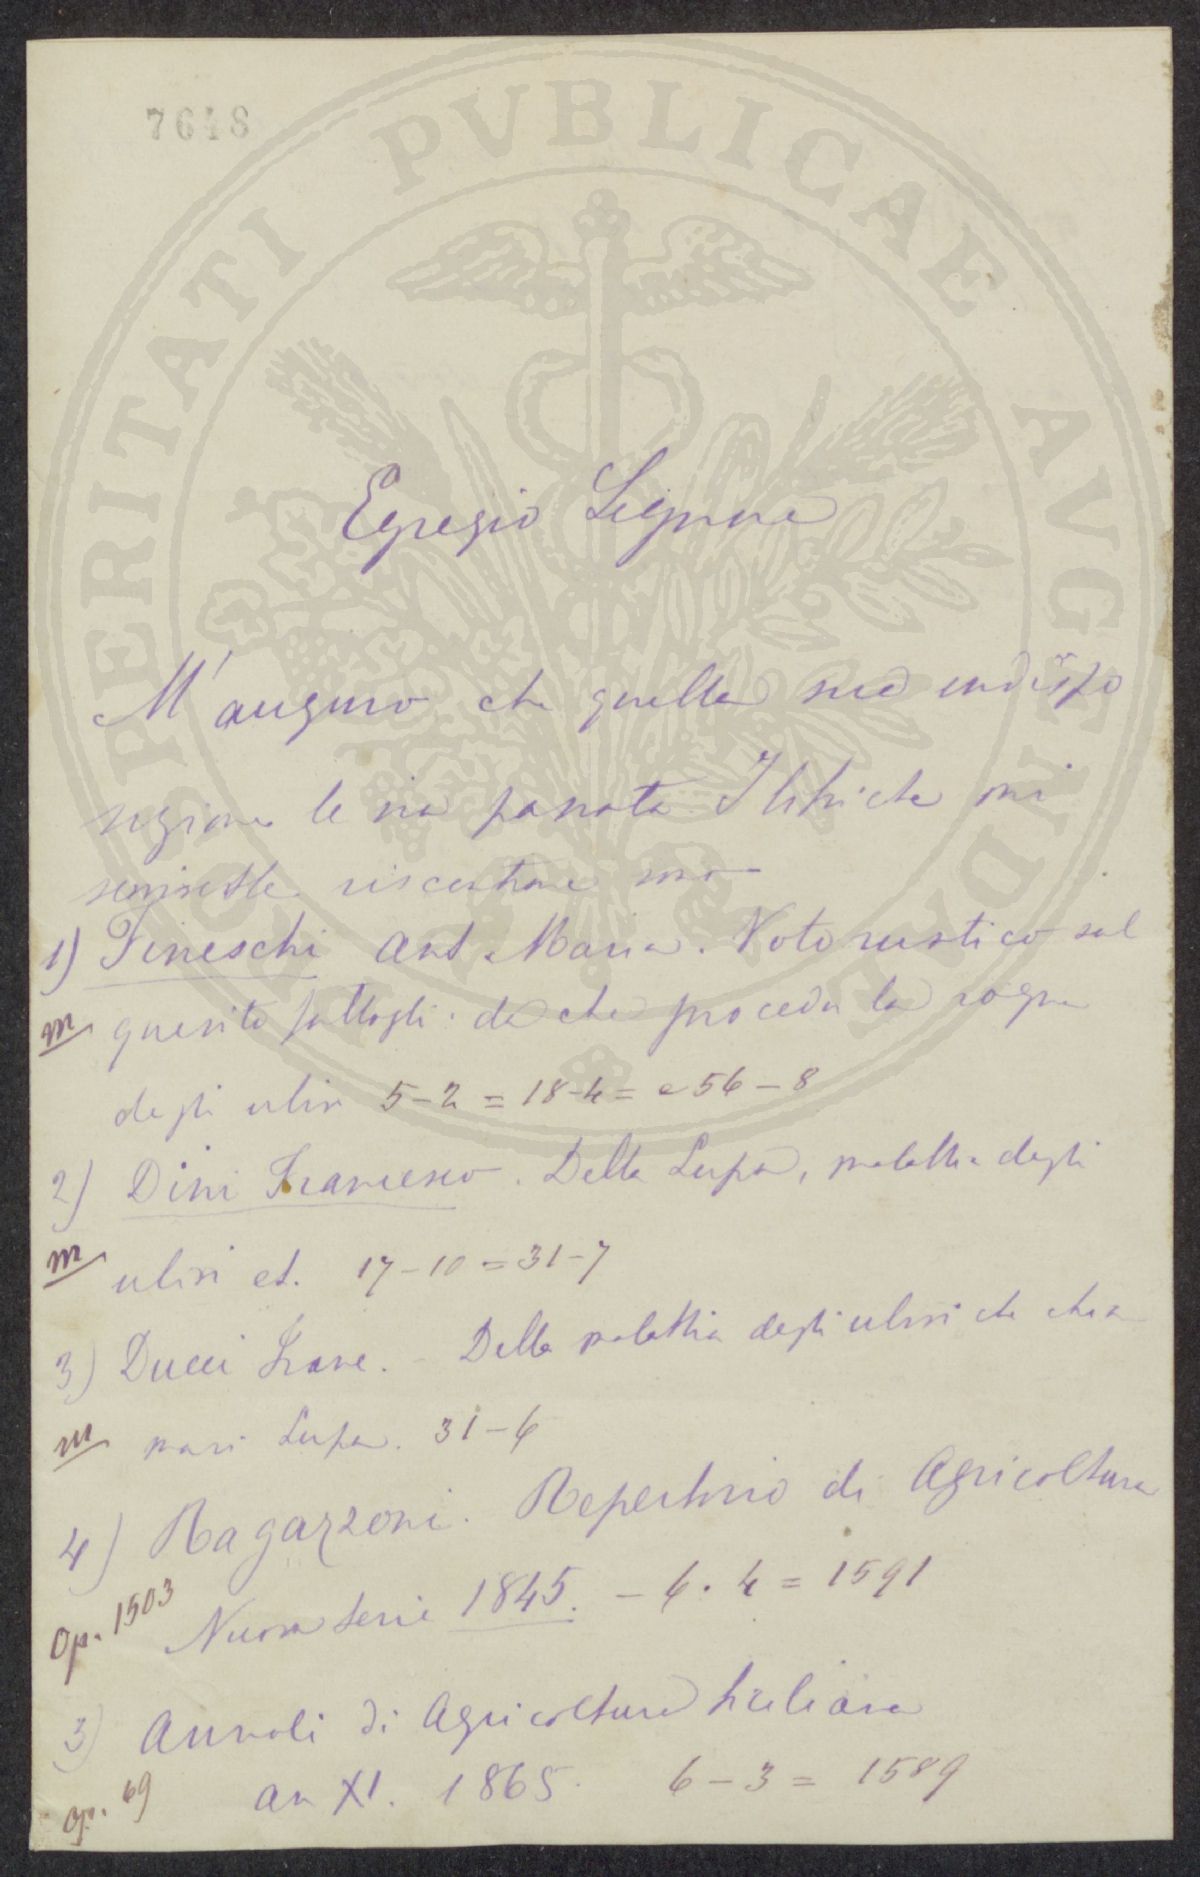 7648
PROSPERITATI PVBLICAE AVGENDAE
Egregio Signore
M'auguro che quella sua indispo
sizione le sia passata. I libri che mi
riscontrare sono
1) Fineschi Ant. Maria. Voto rustico sul
m quesito fattogli: da che proceda la rogna
degli ulivi 5-2 = 18-4 = e 56-8
2) Dini Francesco. Della Lupa, malattia degli
m ulivi et. 17-10 = 31-7
3) Ducci Franc. - Della malattia degli ulivi che chia
m masi Lupa. 31-6
4) Ragazzoni. Repertorio di Agricoltura
Op. 1503 Nuova serie 1845. - 6.4 = 1591
3) Annali di Agricoltura Siciliana
Op. 69 an XI. 1865. 6-3 = 1589